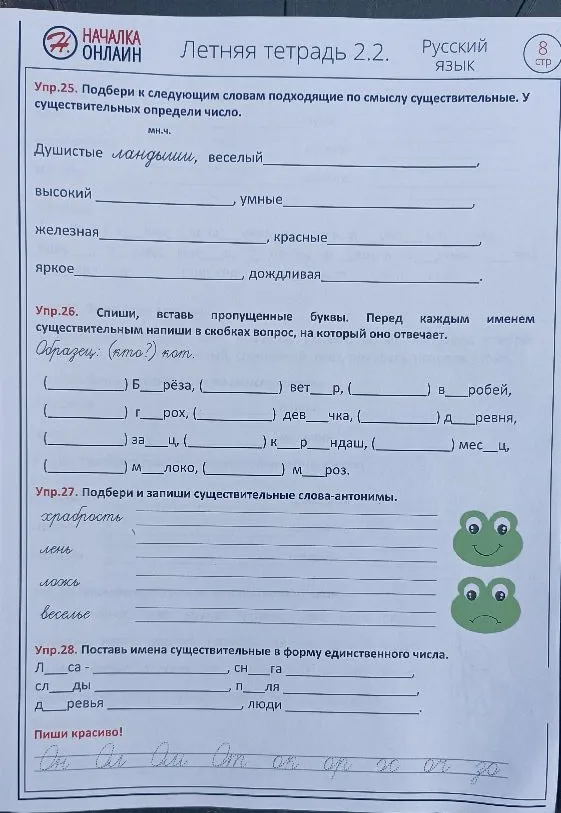 НАЧАЛКА
ОНЛАЙН
Летняя тетрадь 2.2.
Русский
язык
8
стр
Упр.25. Подбери к следующим словам подходящие по смыслу существительные. У
существительных определи число.
мн.ч.
Душистые ландыши, веселый____________,
высокий ____________, умные____________,
железная____________, красные____________,
яркое____________, дождливая____________.
Упр.26. Спиши, вставь пропущенные буквы. Перед каждым именем
существительным напиши в скобках вопрос, на который оно отвечает.
Образец: (кто?) кот.
(________) Б___рёза, (________) вет___р, (________) в___робей,
(________) г___рох, (________) дев___чка, (________) д___ревня,
(________) за___ц, (________) к___р___ндаш, (________) мес___ц,
(________) м___локо, (________) м___роз.
Упр.27. Подбери и запиши существительные слова-антонимы.
храбрость
лень
ложь
веселье
Упр.28. Поставь имена существительные в форму единственного числа.
Л___са - ____________, сн___га ____________,
сл___ды ____________, п___ля ____________,
д___ревья ____________, люди ____________.
Пиши красиво!